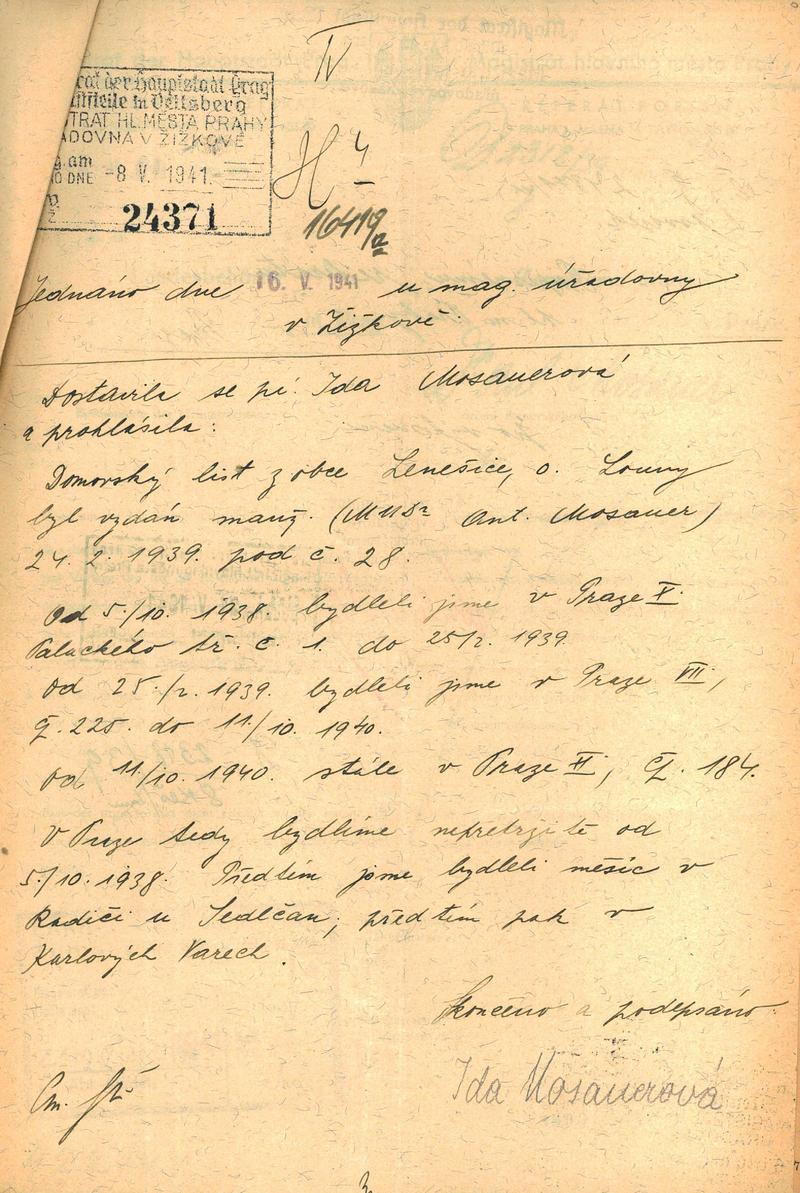 IV
rat der Hauptstadt Prag
tsstelle in Veitsberg
TRAT HL. MĚSTA PRAHY
ADOVNA V ŽIŽKOVĚ
am
DNE -8 V. 1941.
24371
H 4
16419/a
Jednáno dne 16. V. 1941 u mag. úřadovny
v Žižkově.
Dostavila se pí. Ida Mosauerová
a prohlásila:
Domovský list z obce Lenešice, o. Louny
byl vydán manž. (MUDr Ant. Mosauer)
24. 2. 1939. pod č. 28.
Od 5./10. 1938. bydleli jsme v Praze
Palackého tř. č. 1. do 25/2. 1939.
Od 25./2. 1939. bydleli jsme v Praze VII,
čp. 225. do 11./10. 1940.
Od 11./10. 1940. stále v Praze, čp. 184.
V Praze tedy bydlíme nepřetržitě od
5./10. 1938. Předtím jsme bydleli měsíc v
Radíči u Sedlčan, předtím pak v
Karlových Varech.
Skončeno a podepsáno
Ida Mosauerová